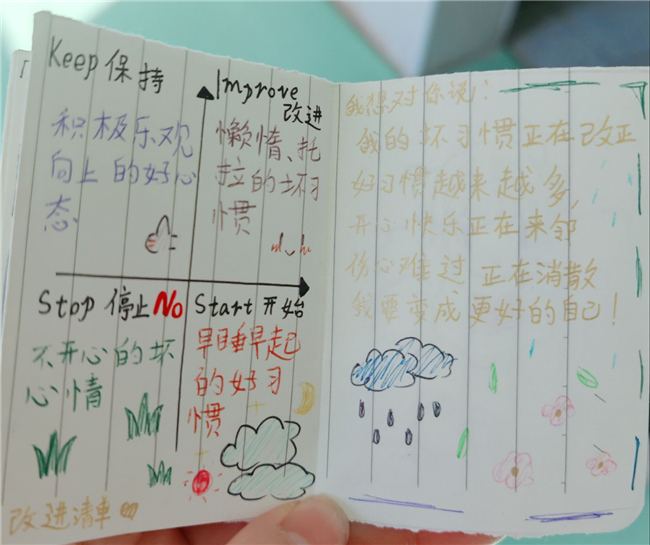 Keep 保持
积极乐观
向上的好心
态
Improve
改进
懒惰、托
拉的坏习
惯
Stop 停止 No
不开心的坏
心情
Start 开始
早睡早起
的好习
惯
改进清单
我想对你说:
我的坏习惯正在改正
好习惯越来越多,
开心快乐正在来邻
伤心难过正在消散
我要变成更好的自己!